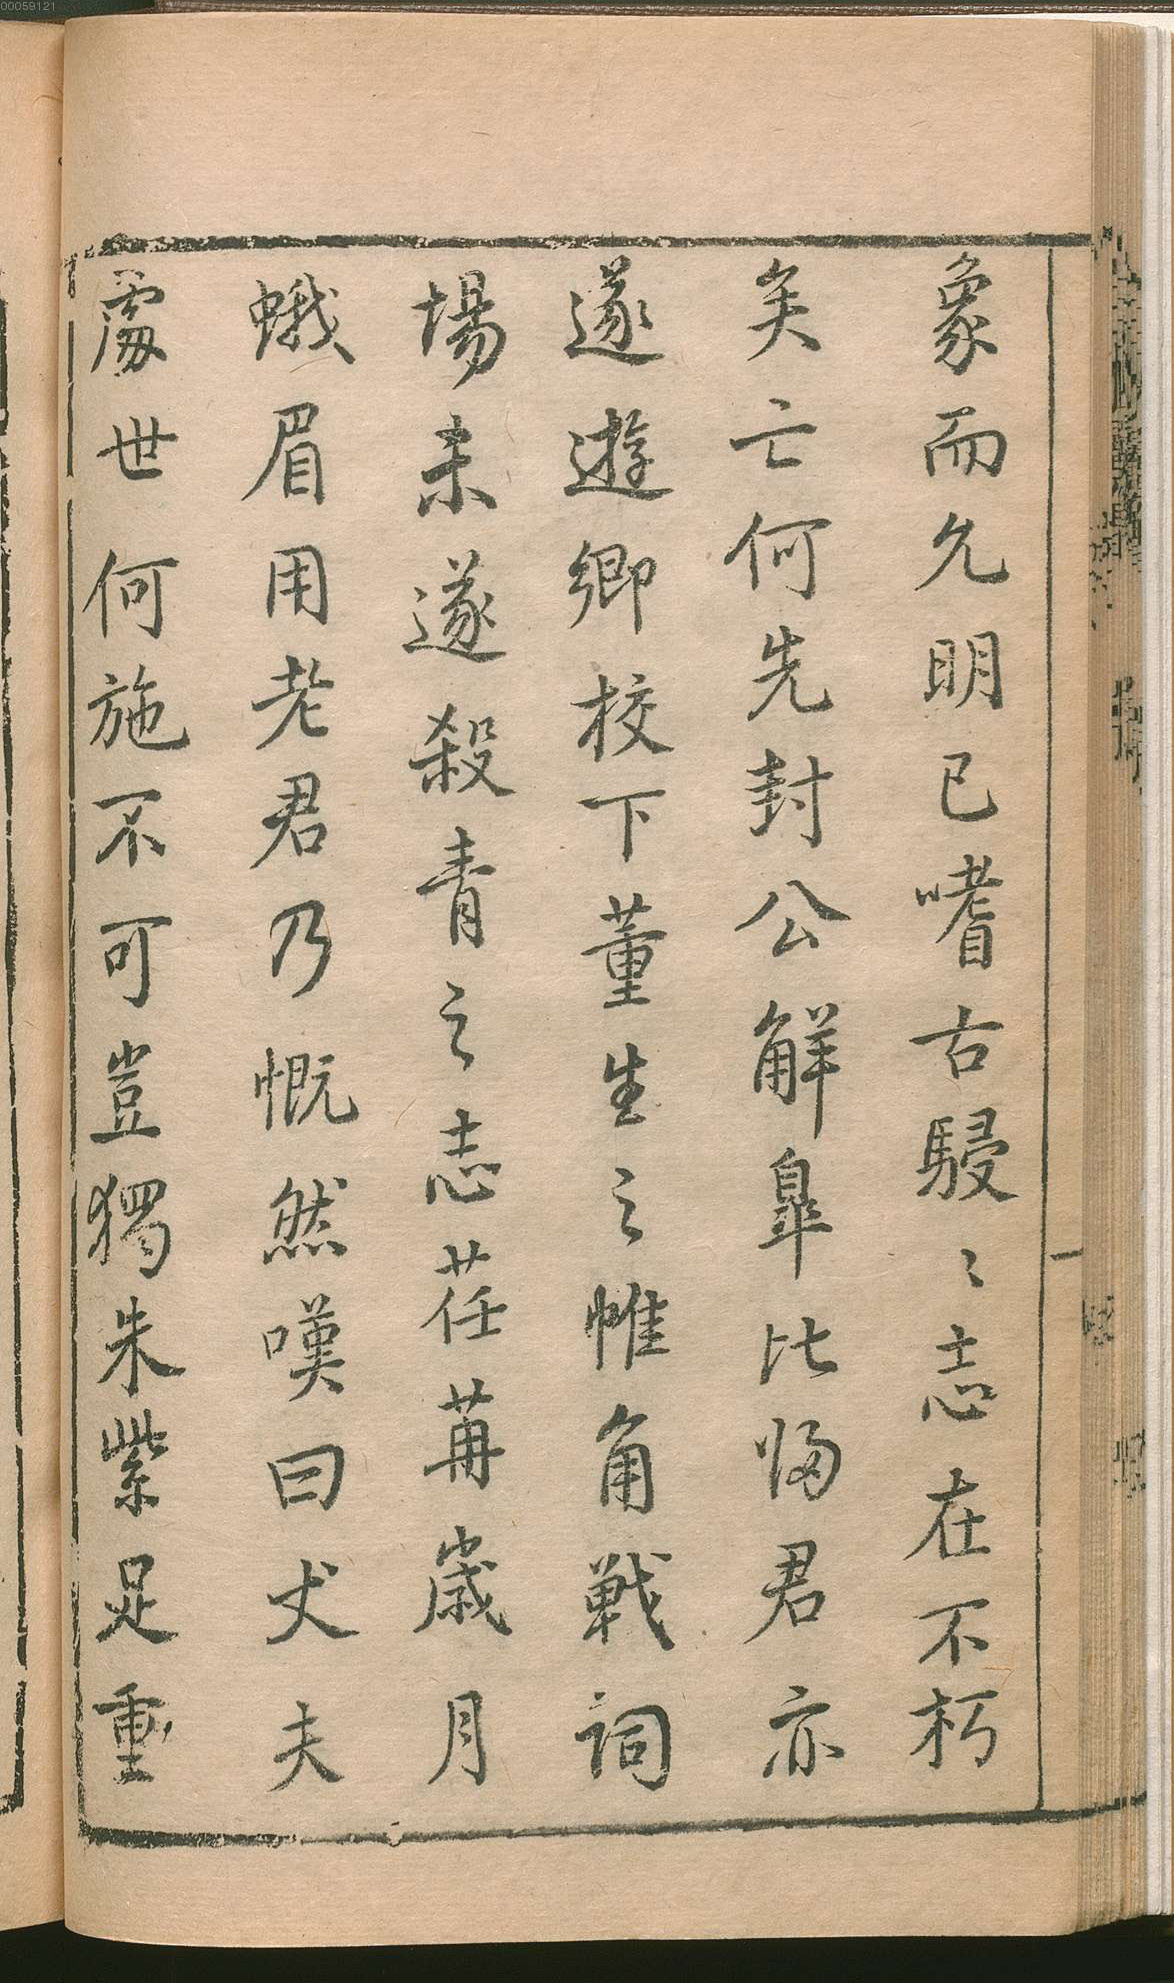 00059121
象而允明已嗜古駸〻志在不朽
矣亡何先封公解臯比歸君亦
遂遊鄉校下董生之帷角戰詞
場未遂殺青之志荏苒歲月
蛾眉用老君乃慨然嘆曰丈夫
處世何施不可豈獨朱紫足重